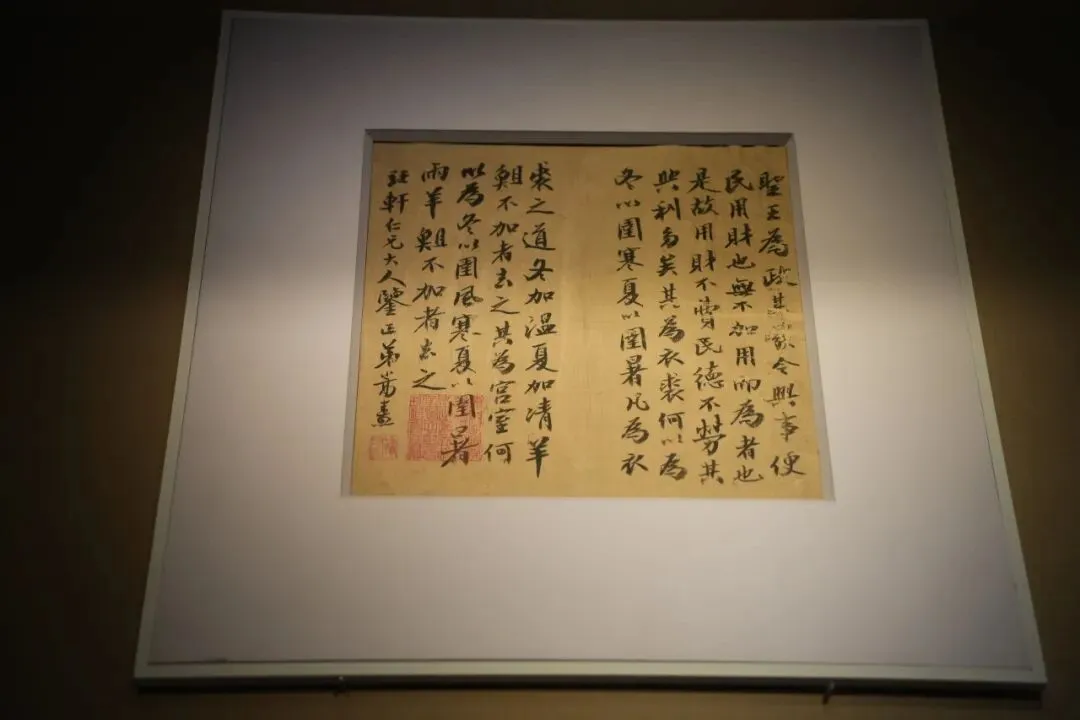 聖王為政其發令興事便
民用財也無不加用而為者也
是故用財不費民德不勞其
興利多矣其為衣裘何以為
冬以圉寒夏以圉暑凡為衣
裘之道冬加温夏加凊羊
䱉不加者去之其為宫室何
以為冬以圉風寒夏以圉暑
雨羊䱉不加者去之
軒仁兄大人鑒正弟